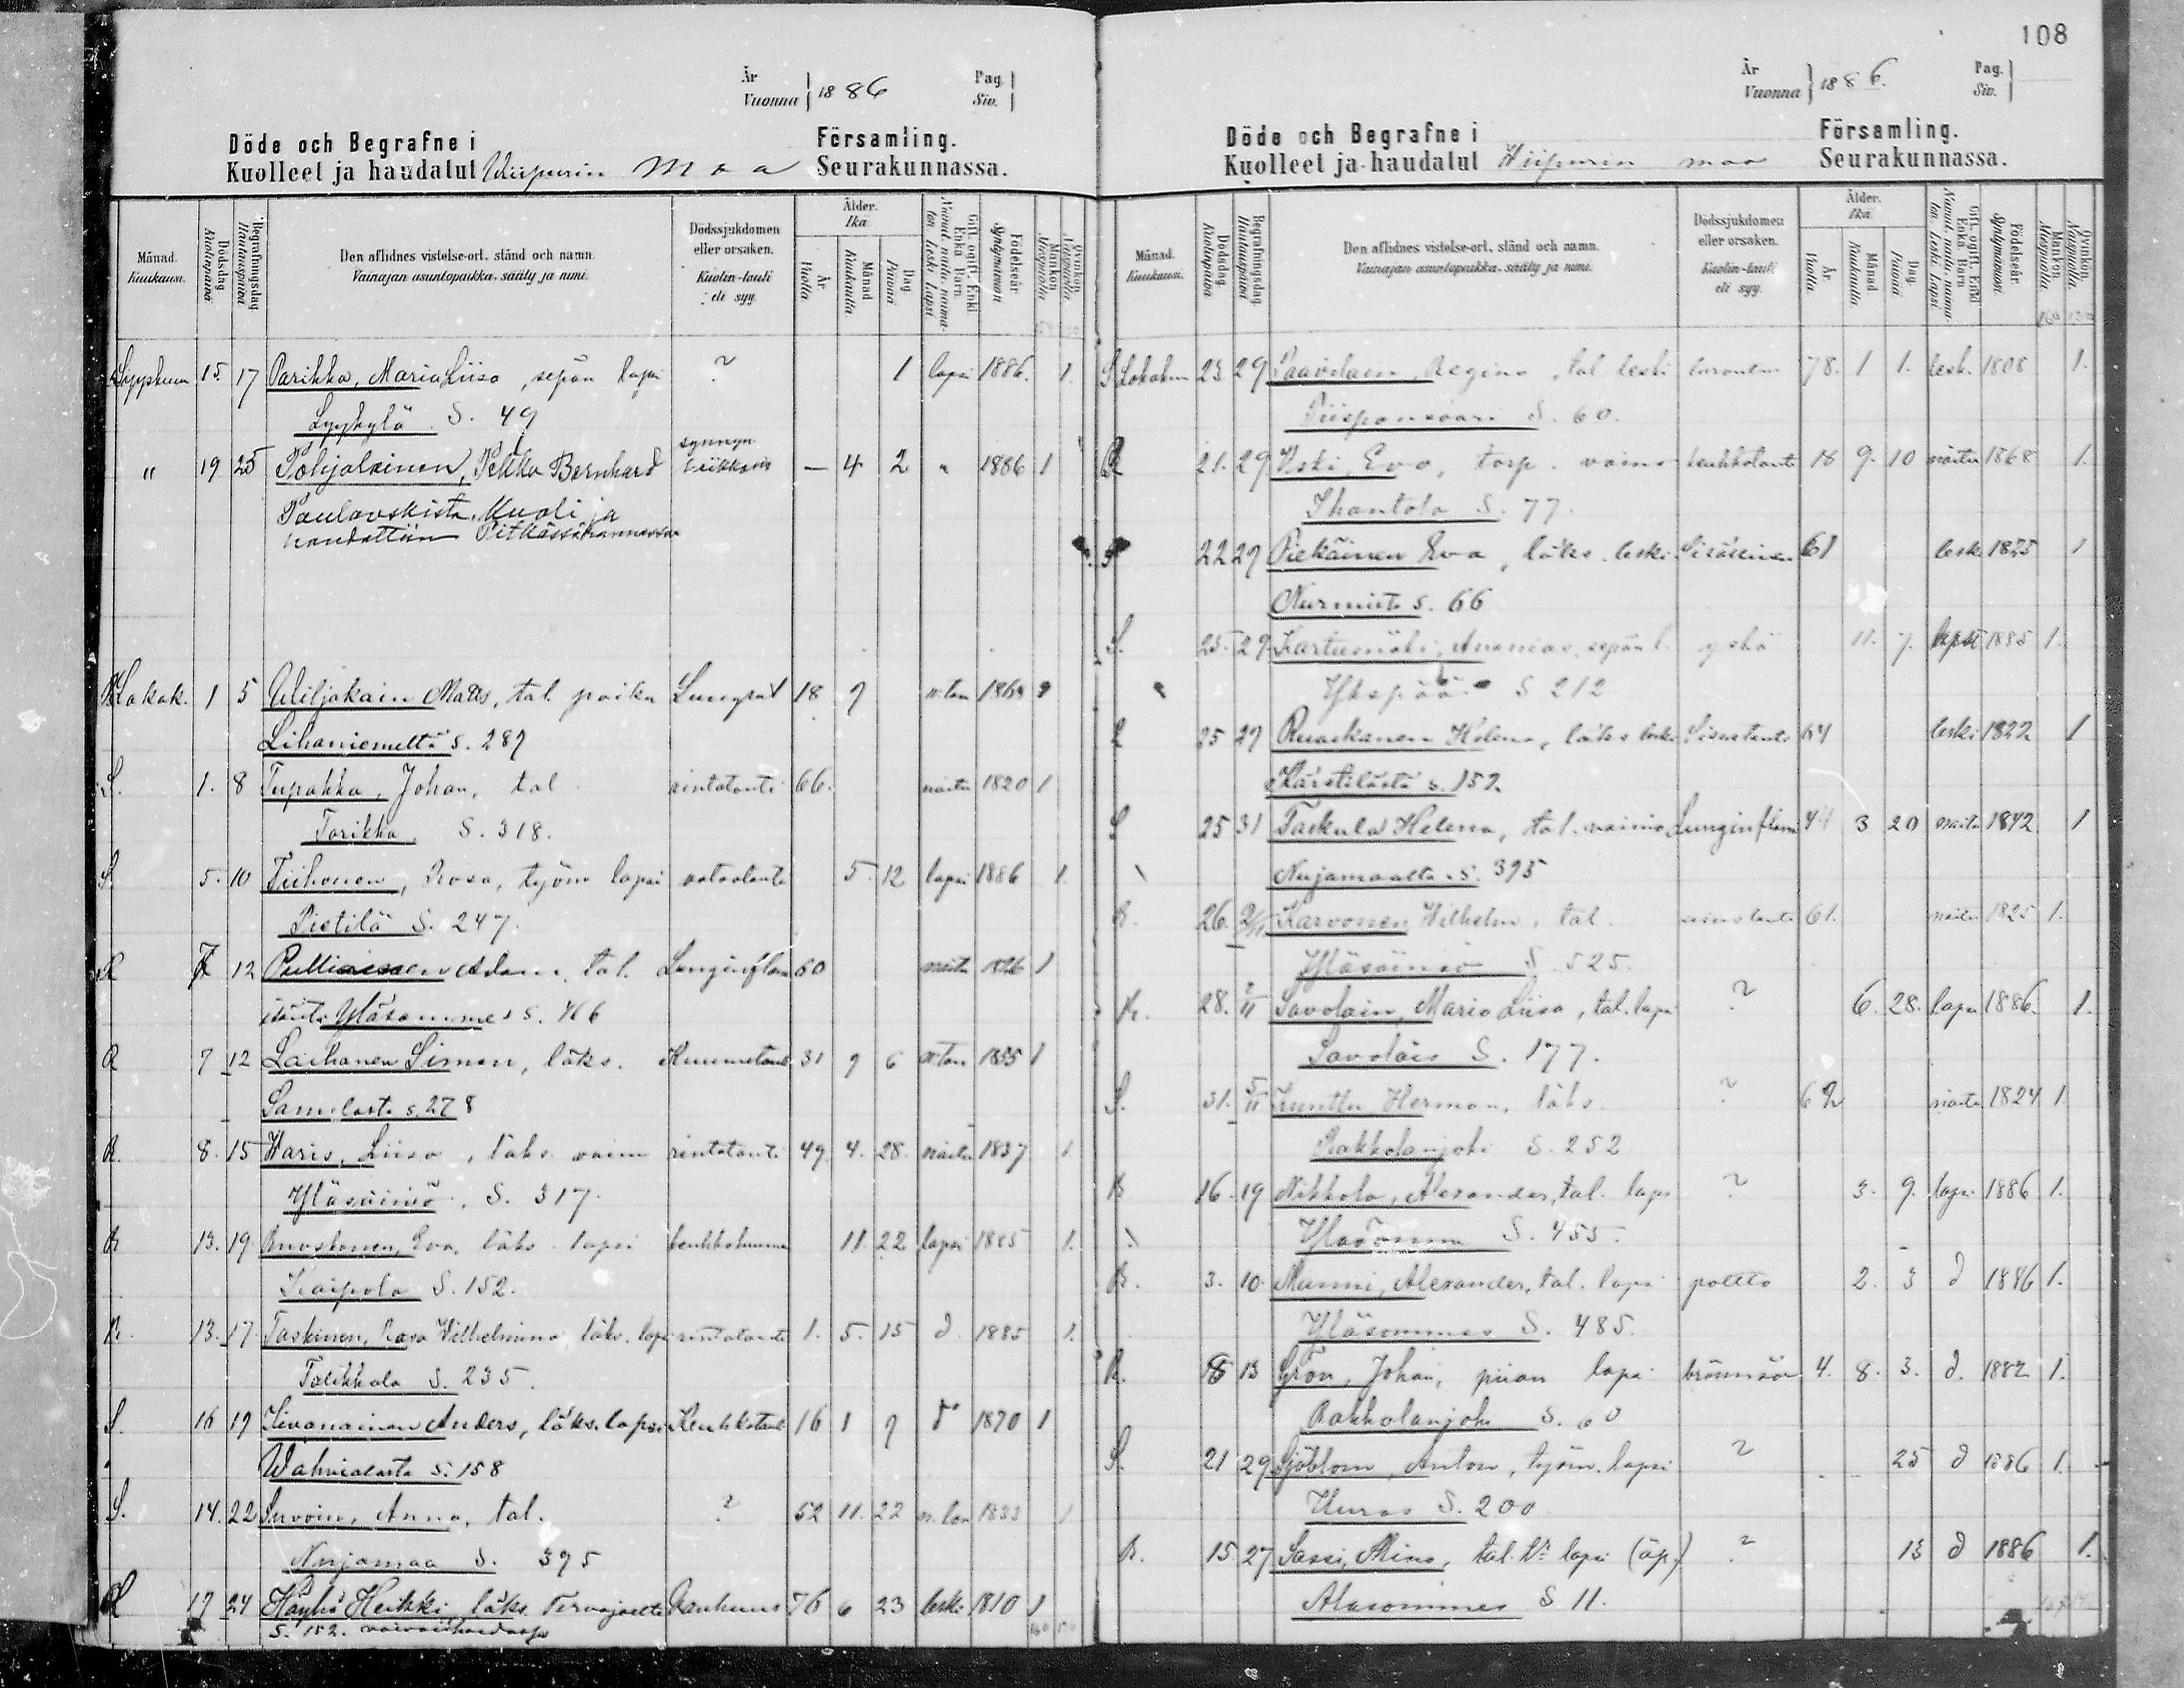 108
År Vuonna 1886 Pag. Siv.
Döde och Begrafne i Församling.
Kuolleet ja haudatut Wiipurin Maa Seurakunnassa.
Månad. Kuukausi.
Dödsdag Kuolinpäivä
Begrafningsdag Hautauspäivä
Den aflidnes vistelse-ort, stånd och namn.
Vainajan asuntopaikka, sääty ja nimi.
Dödssjukdomen eller orsaken.
Kuolin-tauti eli syy.
Ålder. Ikä
År Vuotta
Månad Kuukautta.
Dag Päivää
Gift, ogift, Enkl. Enka Barn.
Födelseår Syntymävuosi
Mankön Miespuolia
Qvinkön Naispuolia
Syyskuun 15. 17 Parikka, Maria Liisa, sepän lapsi ? 1 lapsi 1886. 1.
Lyykylä S. 49
" 19 25 Pohjalainen, Pekka Bernhard synnyn — 4 2 " 1886 1
Paulovskista. Kuoli ja
haudattiin Pitkässärannassa
Lokak. 1 5 Wiljakain Matts, tal. poika 18 9
Lihaniemeltä s. 287
S. 1. 8 Tupakka, Johan, tal. rintatauti 66. naitu 1820 1
Tarikka, S. 318.
S. 5. 10 Tiihonen, Rosa, työm lapsi vatsatauti 5. 12 lapsi 1886 1.
Pietilä S. 247.
R 12 Adam, tal. 60 naitu 1826 1
Yläsommee s. 466
R 7 12 Laihanen Simon, läks. Kuumetauti 31 9 6 1855 1
s. 278
R. 8. 15 Haris, Liisa, läks. vaimo rintatauti 49. 4. 28. naitu 1837 1
Yläsäiniö. S. 317.
R 13. 19. Ruoskanen, Eva, läks. lapsi 11. 22 lapsi 1885 1.
Kaipola S. 152.
R. 13. 17. Taskinen, Rosa Wilhelmina, läks. lapsi rintatauti 1. 5. 15 d. 1885 1.
Talikkala S. 235.
S. 16 19 Anders, läks. lapsi Keuhkotauti 16 1 9 1870 1
s. 158
S. 14. 22 Anna, tal. ? 52 11. 22 1833 1
Nuijamaa S. 395
R 17 24 Häyhä Heikki, läks. Tervajoelta Vanhuus 76 6 23 leski 1810 1
S. 152.
År Vuonna 1886. Pag. Siv.
Döde och Begrafne i Församling.
Kuolleet ja haudatut Wiipurin maa Seurakunnassa.
Månad. Kuukausi.
Dödsdag Kuolinpäivä
Begrafningsdag Hautauspäivä
Den aflidnes vistelse-ort, stånd och namn.
Vainajan asuntopaikka, sääty ja nimi.
Dödssjukdomen eller orsaken.
Kuolin-tauti eli syy.
Ålder. Ikä
År Vuotta
Månad Kuukautta.
Dag Päivää
Gift, ogift, Enkl. Enka Barn.
Födelseår Syntymävuosi.
Mankön Miespuolia
Qvinkön Naispuolia.
S Lokakuu 23 29 Paavilain, Regina, tal. leski 78. 1 1. lesk. 1808 1.
Piispansaari S. 60.
R 21. 29 Uski, Eva, torp. vaimo keuhkotauti 18 9. 10 naitu 1868 1.
Ihantala S. 77.
22 29 Piekäinen Eva, läks. leski 61 lesk 1825 1
Nurmista s. 66
S. 25. 29. Ananias, sepän l. yskä 11. 7. lapsi 1885 1.
Ykspää S 212
25 29 Ruuskanen Helena, läks leski 64 leski 1822 1
Kärstilästä s. 152
S 25 31 Taskula Helena, tal. vaimo 44 3 20 naitu 1842 1
Nuijamaalta s. 395
R. 26. 2/11 Karvonen Wilhelm, tal. 61. naitu 1825 1.
Yläsäiniö S. 525.
R. 28. 2/11 Savolain, Maria Liisa, tal. lapsi ? 6. 28. lapsi 1886. 1.
Savolais S. 177.
S. 31. 5/11 Kunttu Herman, läks. ? 62 naitu 1824 1.
Rakkolanjoki S. 252
R 16. 19 Nikkola, Alexander, tal. lapsi ? 3. 9. lapsi 1886 1.
S. 455.
R. 3. 10. Manni, Alexander, tal. lapsi poltto 2. 3 d 1886 1.
Yläsommee S. 485.
R. 8 13 Grön, Johan, piian lapsi 4. 8. 3. d. 1882 1.
Rakkolanjoki S. 60
S. 21 29 Sjöblom, Anton, työm. lapsi ? 25 d 1886 1.
Uuras S. 200
R. 15. 27 Sassi, Miina, tal. lapsi (äp.) ? 13 d 1886 1.
Alasommee S 11.